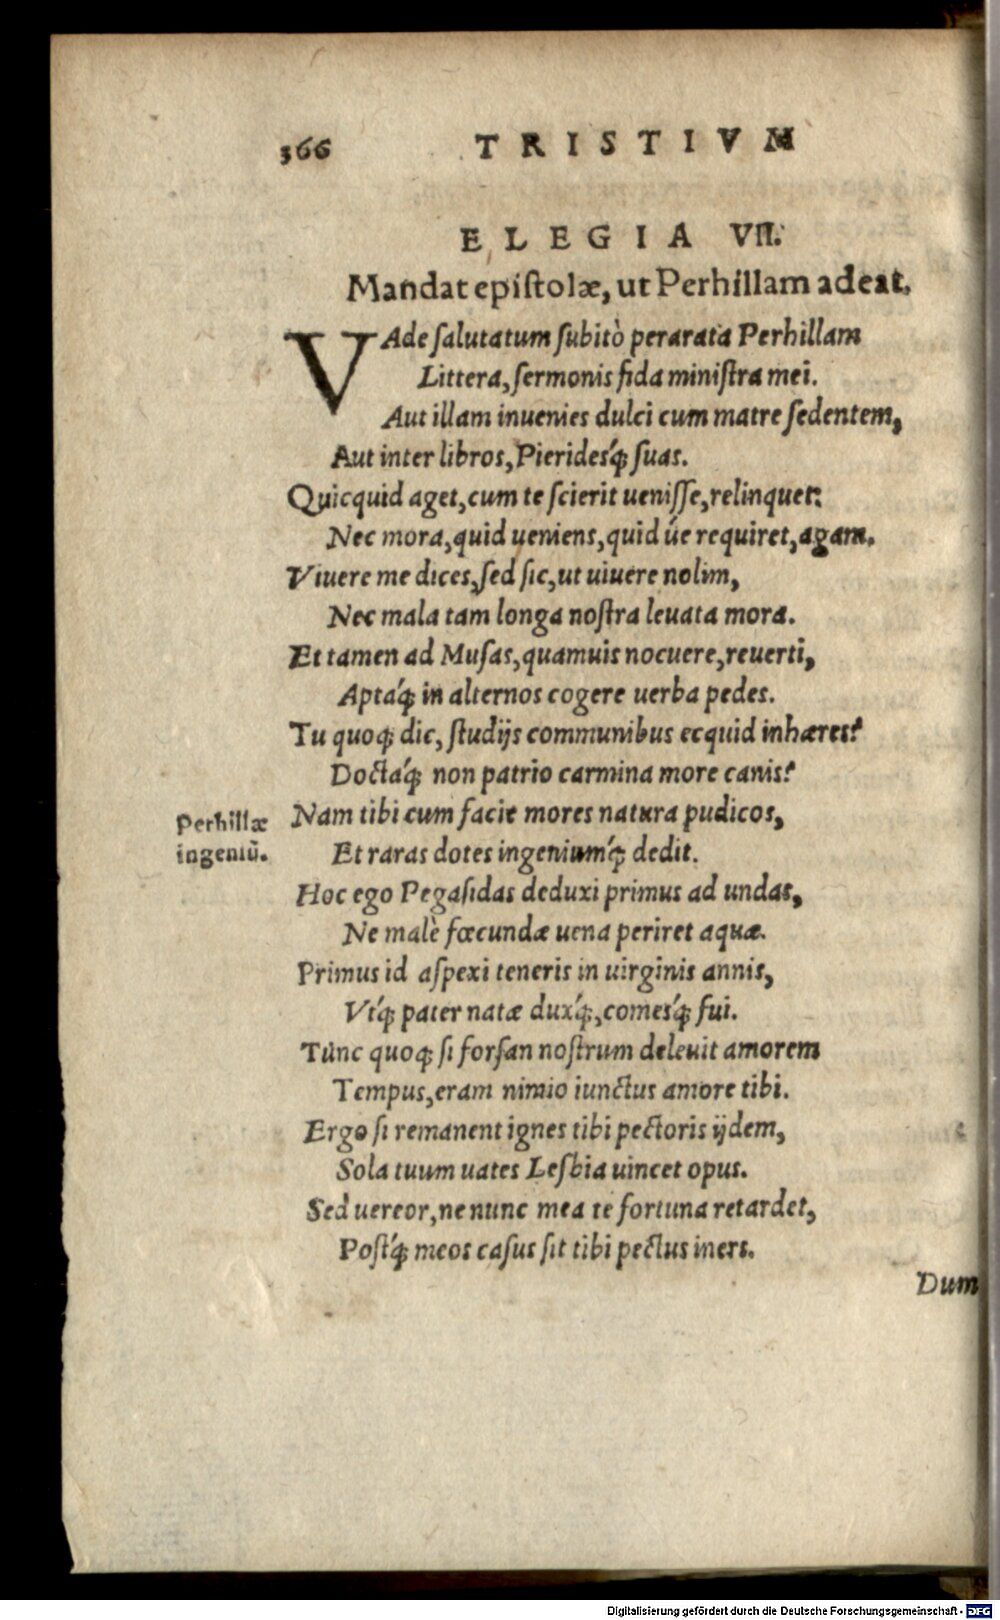 366 TRISTIVM
ELEGIA VII.
Mandat epistolæ, ut Perhillam adeat.
VAde salutatum subitò perarata Perhillam
Littera, sermonis fida ministra mei.
Aut illam inuenies dulci cum matre sedentem,
Aut inter libros, Pieridesq́; suas.
Quicquid aget, cum te scierit uenisse, relinquet:
Nec mora, quid ueniens, quid úe requiret, agam.
Viuere me dices, sed sic, ut uiuere nolim,
Nec mala tam longa nostra leuata mora.
Et tamen ad Musas, quamuis nocuere, reuerti,
Aptaq́; in alternos cogere uerba pedes.
Tu quoq; dic, studijs communibus ecquid inhæres?
Doctaq́; non patrio carmina more canis?
Perhillæ
ingeniũ.
Nam tibi cum facie mores natura pudicos,
Et raras dotes ingeniumq́; dedit.
Hoc ego Pegasidas deduxi primus ad undas,
Ne malè fœcundæ uena periret aquæ.
Primus id aspexi teneris in uirginis annis,
Vtq́; pater natæ duxq́;, comesq́; fui.
Tunc quoq; si forsan nostrum deleuit amorem
Tempus, eram nimio iunctus amore tibi.
Ergo si remanent ignes tibi pectoris ijdem,
Sola tuum uates Lesbia uincet opus.
Sed uereor, ne nunc mea te fortuna retardet,
Postq́; meos casus sit tibi pectus iners.
Dum
Digitalisierung gefördert durch die Deutsche Forschungsgemeinschaft - DFG